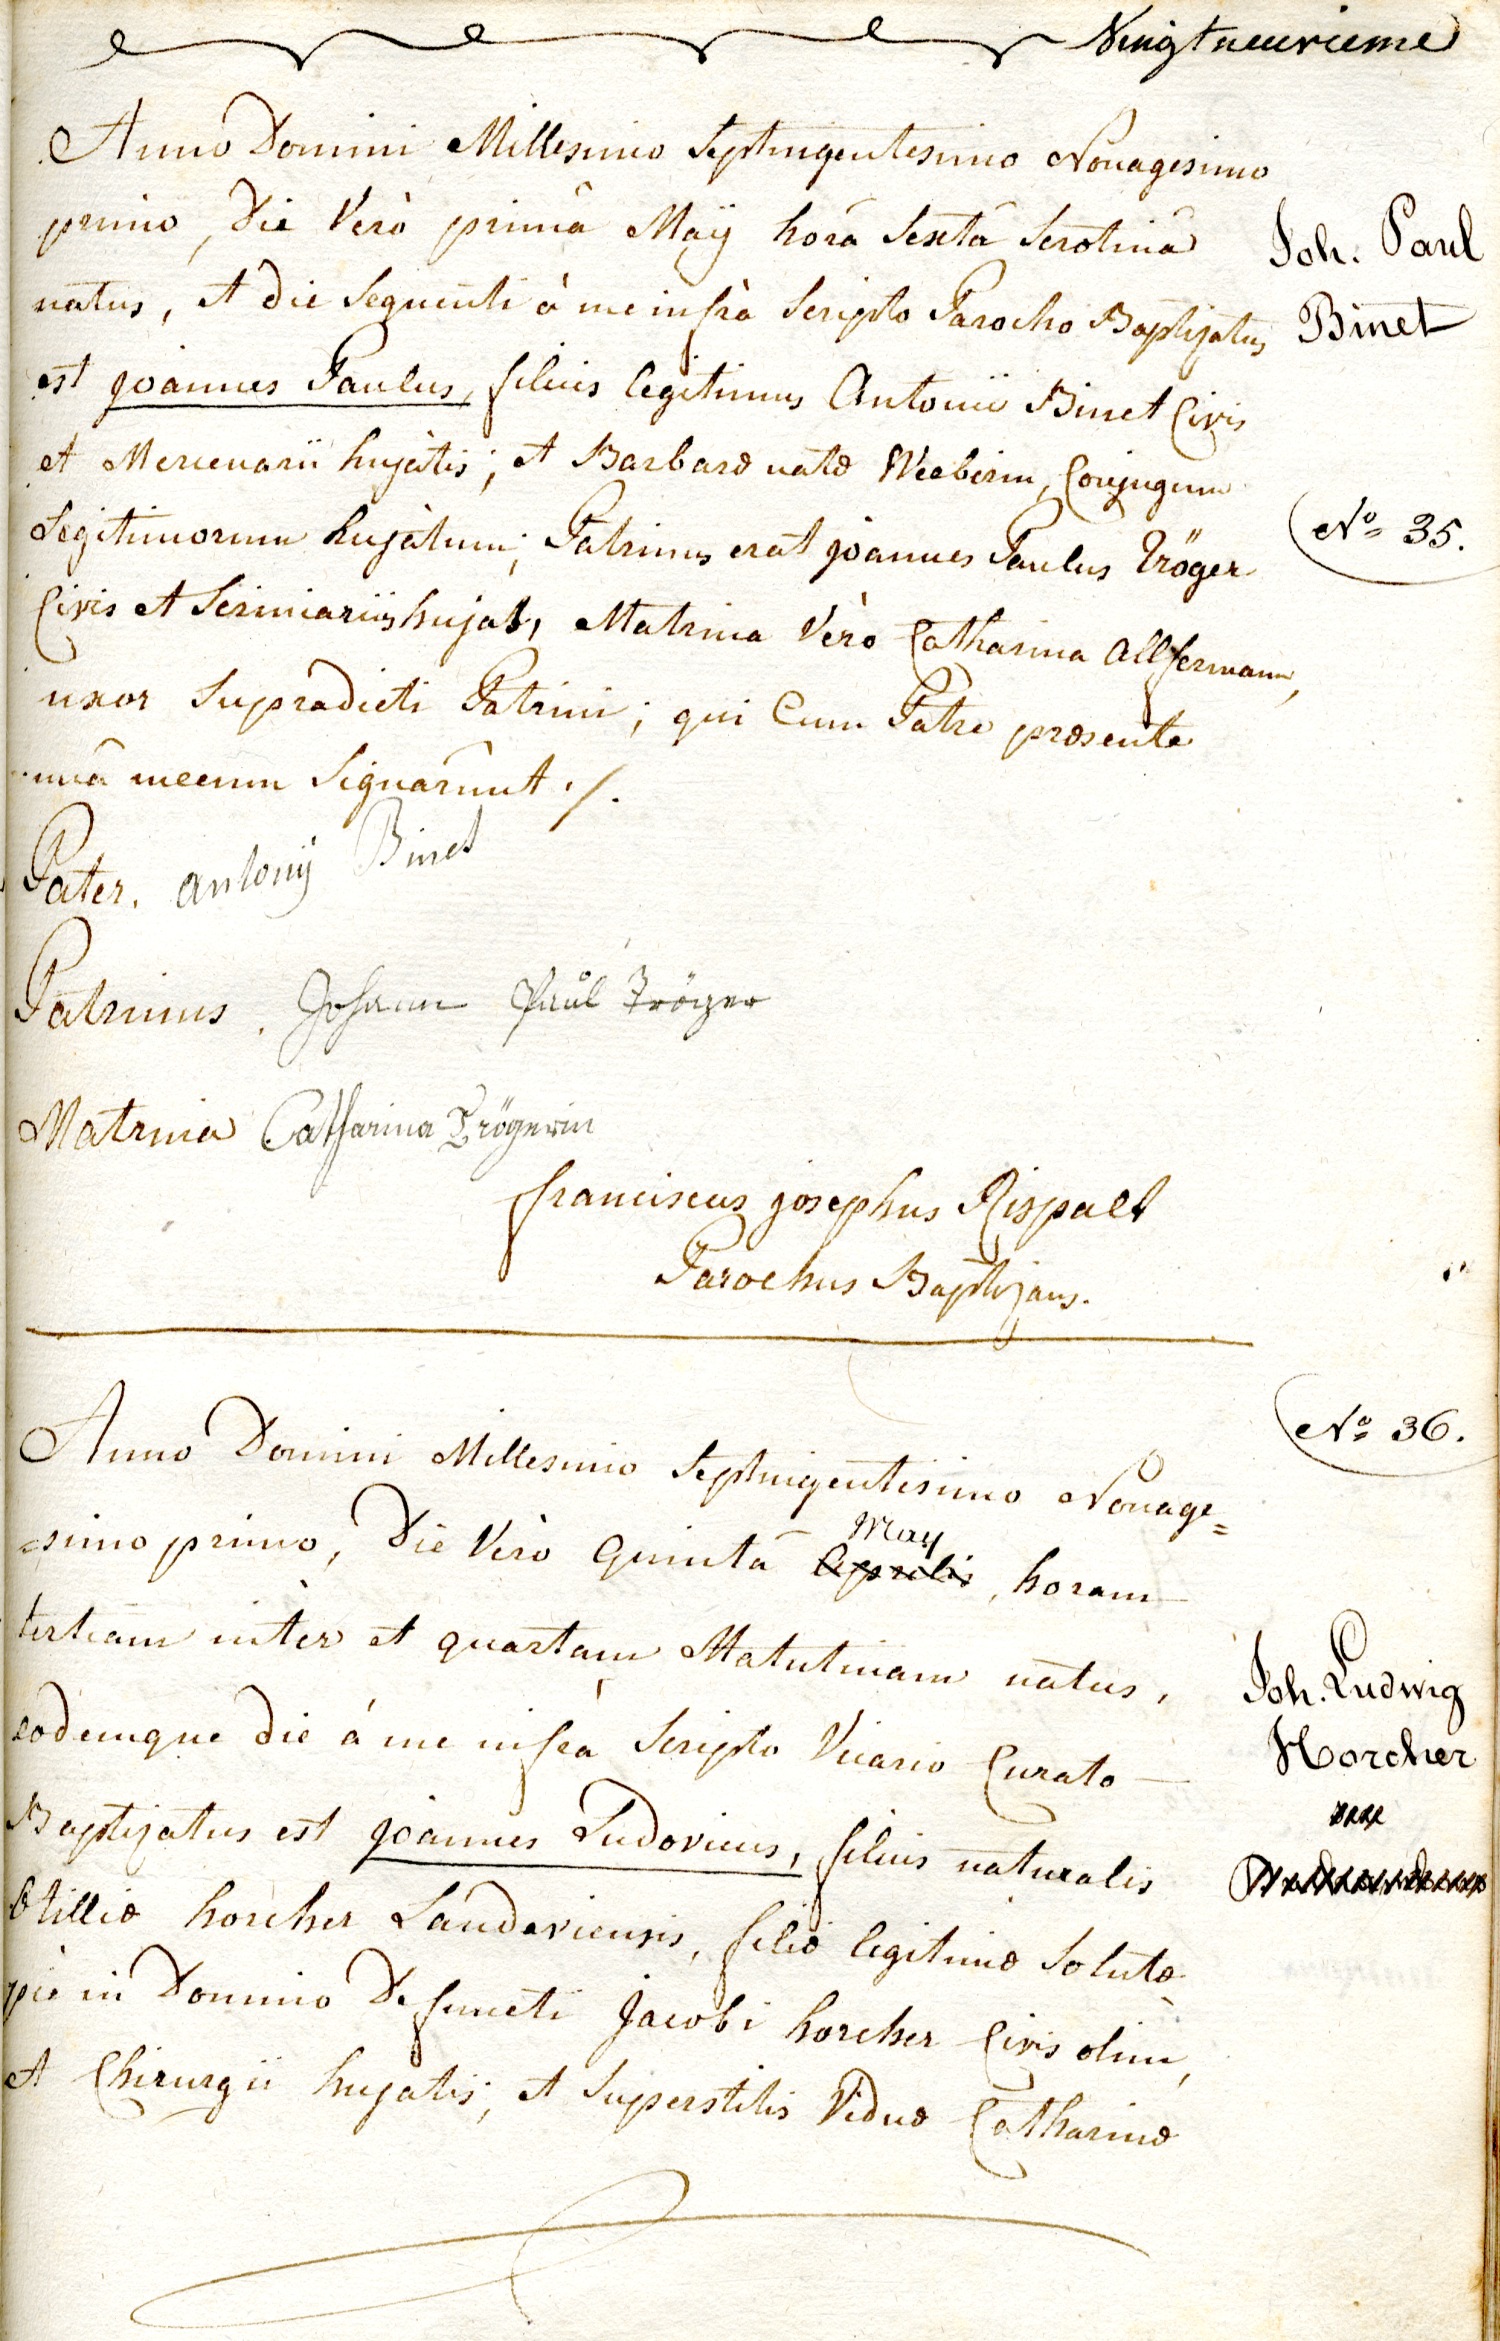 Vingtneuvieme
Anno Domini Millesimo Septingentesimo Nonagesimo
primo, Die Verò primâ Maÿ horâ Sextâ Serotinâ
natus, et die Sequenti à me infrà Scripto Parocho Baptizatus
est joannes Paulus, filius legitimus Antonii Binet Civis
et Mercenarii hujatis; et Barbaræ natæ Weeberin, Conjugum
Legitimorum hujatum; Patrinus erat joannes Paulus Tröger
Civis et Scriniarius hujas, Matrina Verò Catharina Allfermann,
uxor Supradicti Patrini; qui Cum Patre præsente
unâ mecum Signarunt ./.
Joh. Paul
Binet
No 35.
Pater. antonÿ Binet
Patrinus. Johann Paul Tröger
Matrina Catharina Trögerin
franciscus josephus Rispalt
Parochus Baptizans.
No 36.
Anno Domini Millesimo Septingentisimo Nonage=
=simo primo, Die Vero Quintâ Aprilis May, horam
tertiam inter et quartam Matutinam natus,
eodemque die á me infrà Scripto Vicario Curato
Baptizatus est joannes Ludovicus, filius naturalis
Otilliæ horcher Landaviensis, filiæ legitimæ Solutæ
piè in Domino Defuncti Jacobi horcher Civis olim,
et Chirurgii hujatis; et Superstitis Viduæ Catharinæ
Joh. Ludwig
Horcher